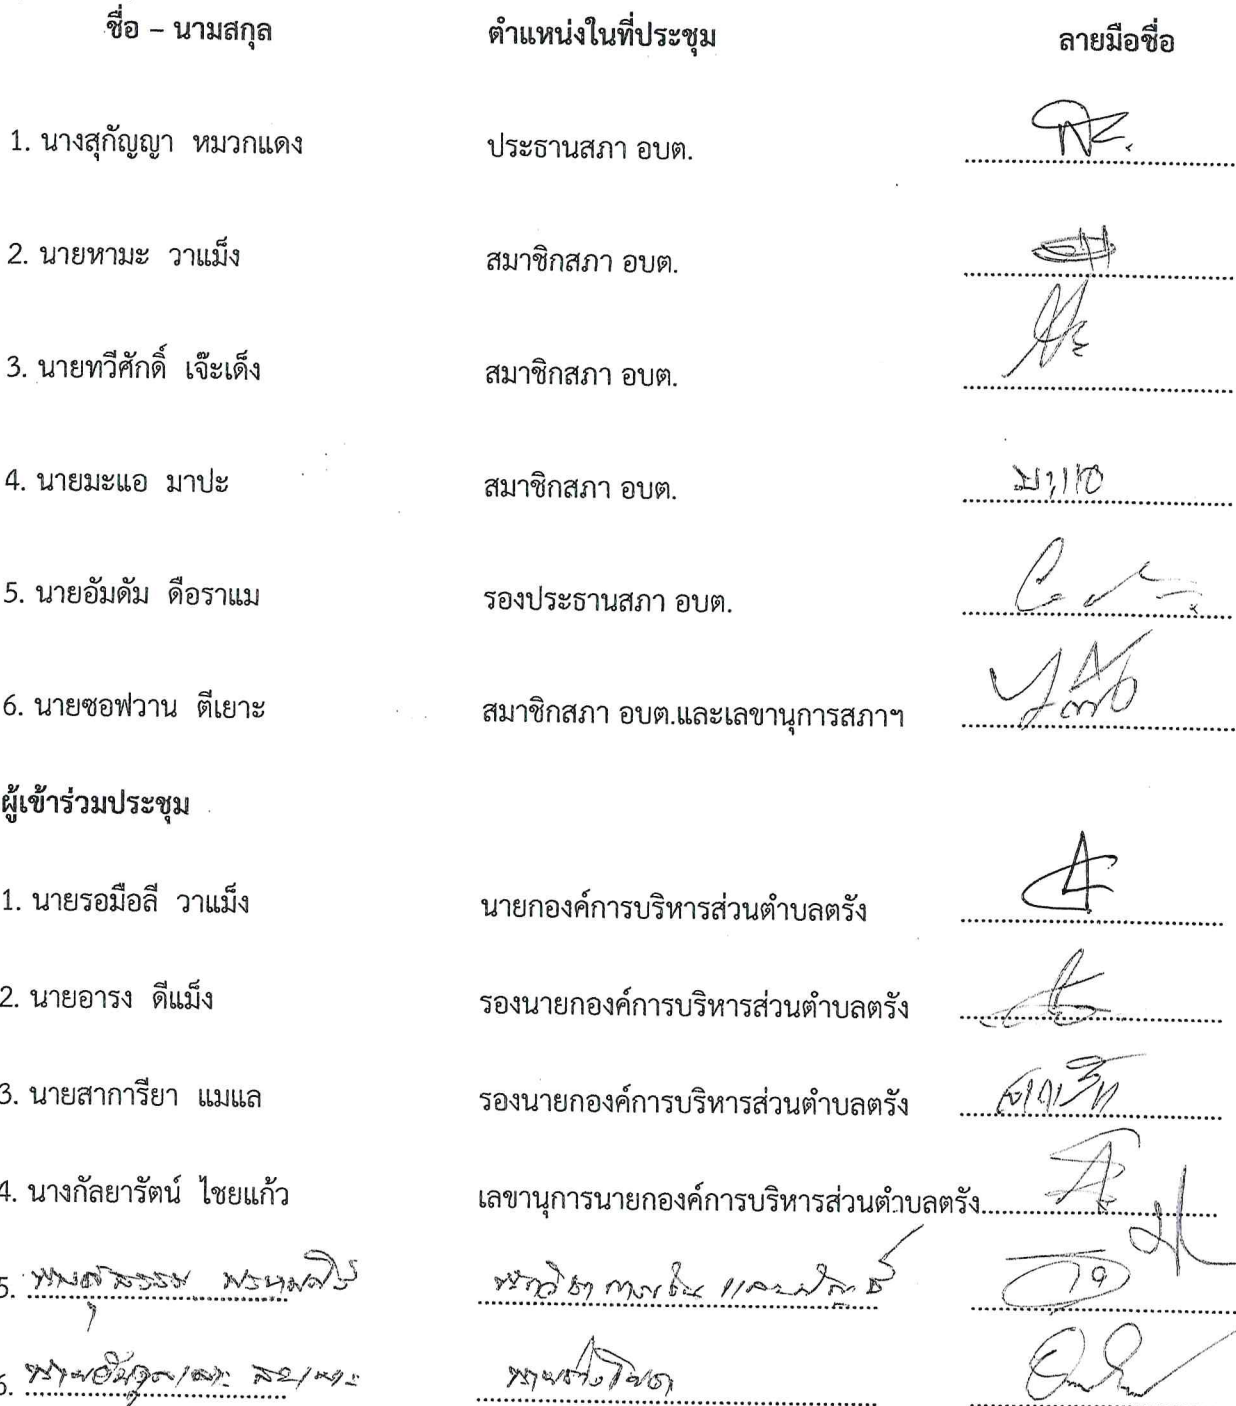 ชื่อ – นามสกุล ตำแหน่งในที่ประชุม ลายมือชื่อ
1. นางสุกัญญา หมวกแดง ประธานสภา อบต.
2. นายหามะ วาแม็ง สมาชิกสภา อบต.
3. นายทวีศักดิ์ เจ๊ะเด็ง สมาชิกสภา อบต.
4. นายมะแอ มาปะ สมาชิกสภา อบต. มะแอ
5. นายอัมดัม ดือราแม รองประธานสภา อบต.
6. นายซอฟวาน ตีเยาะ สมาชิกสภา อบต.และเลขานุการสภาฯ
ผู้เข้าร่วมประชุม
1. นายรอมือลี วาแม็ง นายกองค์การบริหารส่วนตำบลตรัง
2. นายอารง ดีแม็ง รองนายกองค์การบริหารส่วนตำบลตรัง
3. นายสาการียา แมแล รองนายกองค์การบริหารส่วนตำบลตรัง
4. นางกัลยารัตน์ ไชยแก้ว เลขานุการนายกองค์การบริหารส่วนตำบลตรัง
5.
6. นายช่างโยธา